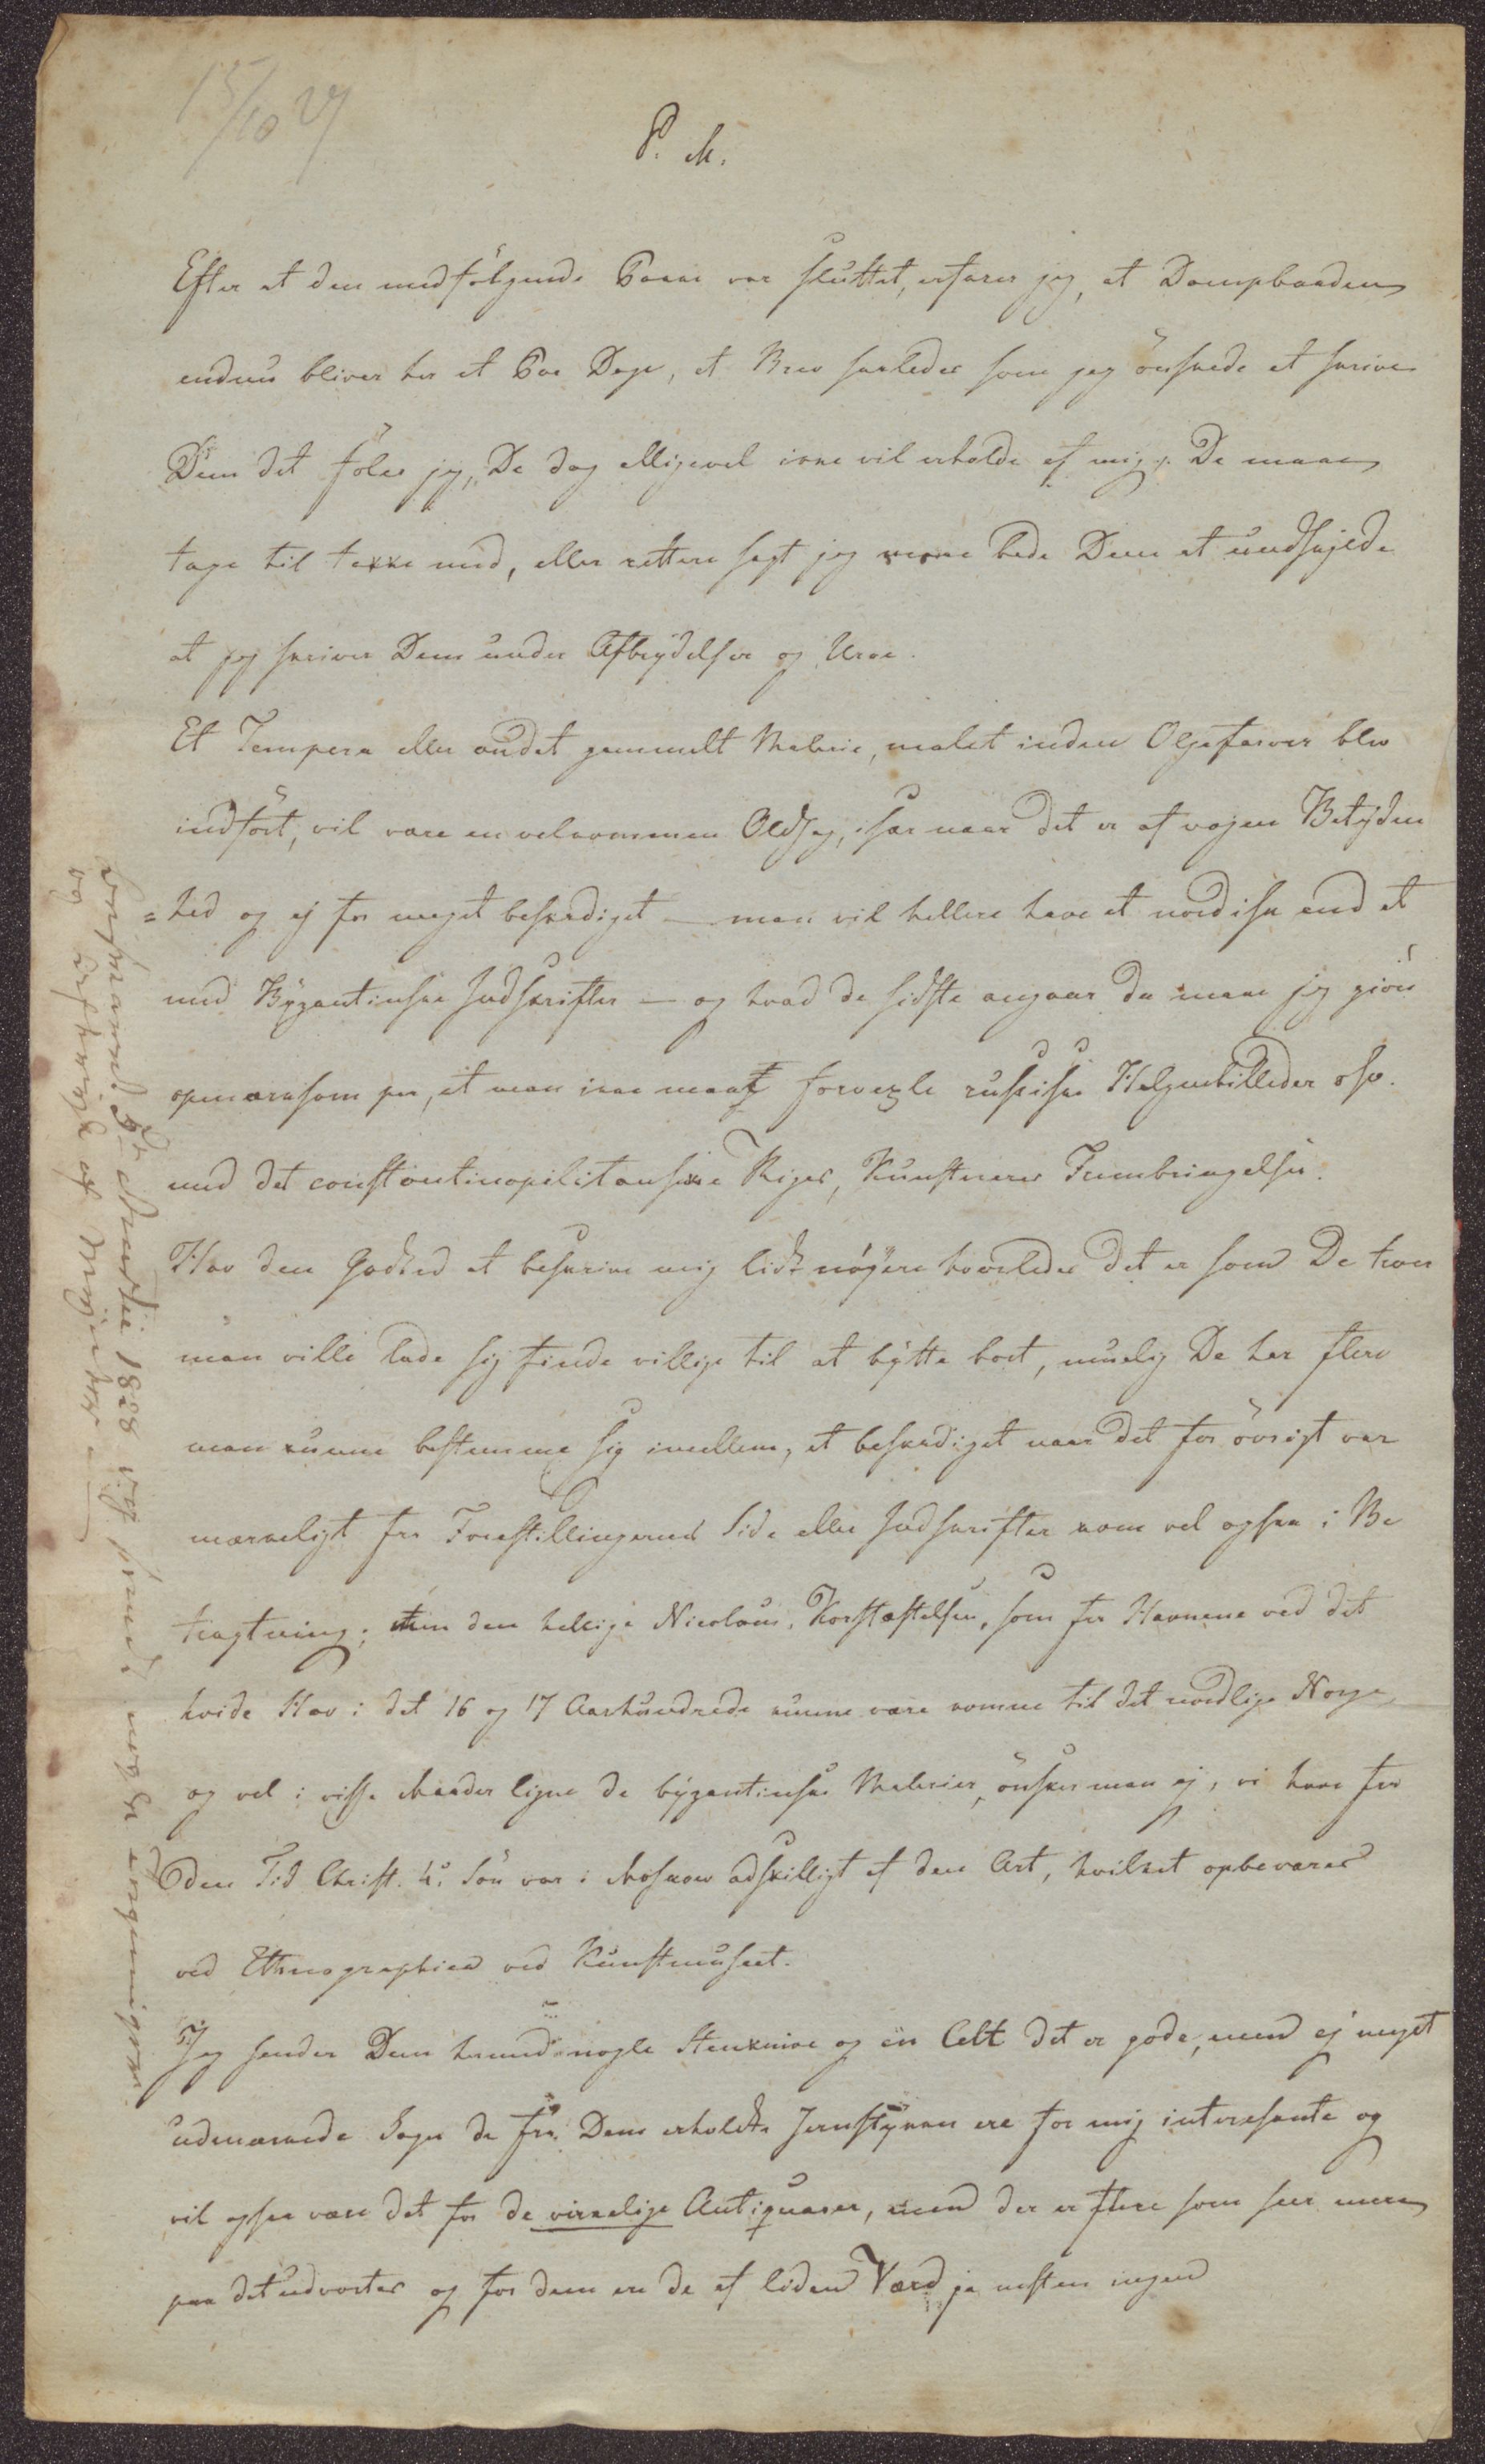 15/10 27
P. M.
Efter at den medfölgende Pakke var sluttet, erfarer jeg, at Dampbaaden
endnu bliver her et Par Dage, et Brev saaledes som jeg önskede at skrive
Dem det föler jeg, De dog alligevel ikke vil erholde af mig, De maae
tage til takke med, eller rettere sagt jeg maae bede Dem at undskylde
at jeg skriver Dem under Afbrydelser og Uroe.
Et Tempera eller andet gammelt Malerie, malet inden Oljefarver blev
indfört, vil være en velkommen Oldsag, især naar det er af nogen Betyden
=hed og ej for meget beskadiget — man vil hellere have et nordisk end et
med Byzantinske Indskrifter — og hvad de sidste angaar da maae jeg giöre
opmærksom paa, at man ikke maae forvexle russiske Helgenbilleder osv.
med det constantinopolitanske Riges, Kunstneres Frembringelser.
Hav den Godhed at beskrive mig lidt nöyere hvorledes det er som De troer
man ville lade sig finde villige til at bytte bort, muelig De har flere
man kunne bestemme sig imellem, et beskadiget naar det for övrigt var
mærkeligt fra Forestillingernes Side eller Indskrifter kom vel ogsaa i Be
tragtning; men den hellige Nicolaus, Korsfæstelsen, som fra Havnene ved det
hvide Hav i det 16 og 17 Aarhundrede kunne være komne til det nordlige Norge,
og vel i visse Maader ligne de byzantinske Malerier, önsker man ej, vi have fra
den Tid Christ. 4s Sön var i Moskow adskilligt af den Art, hvilket opbevares
ved Ethnographien ved Kunstmuseet.
Jeg sender Dem herved nogle Steenknive og en Celt det er gode, men ej meget
udmærkede Sager de fra Dem erholdte Jernstykker ere for mig interesante og
vil ogsaa være det for de virkelige Antiquarer, men der er flere som seer mere
paa det udvortes og for dem ere de af liden Værd ja næsten ingen
Besvaret 1828 og sendt nogle
og af Mynter —